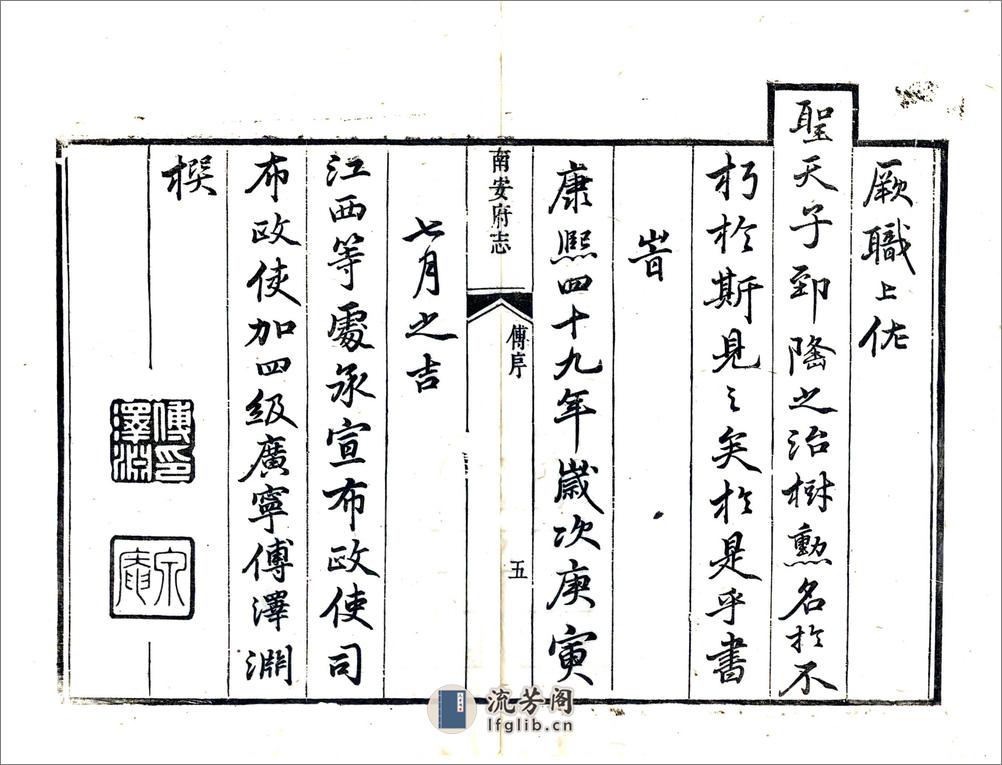 厥職上佐
聖天子郅隆之治樹勲名於不
朽於斯見之矣於是乎書
旹
康熙四十九年歲次庚寅
南安府志
傅序
五
七月之吉
江西等處承宣布政使司
布政使加四級廣寧傅澤淵
撰
傅印澤淵
流芳阁
lfglib.cn